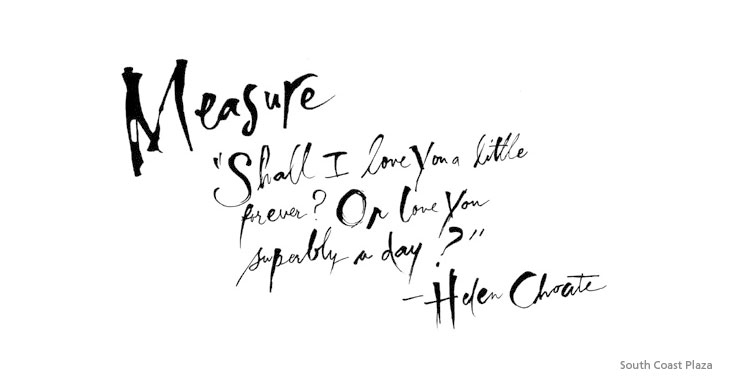 Measure
"Shall I love You a little
forever? Or love You
superbly a day?"
—Helen Choate
South Coast Plaza